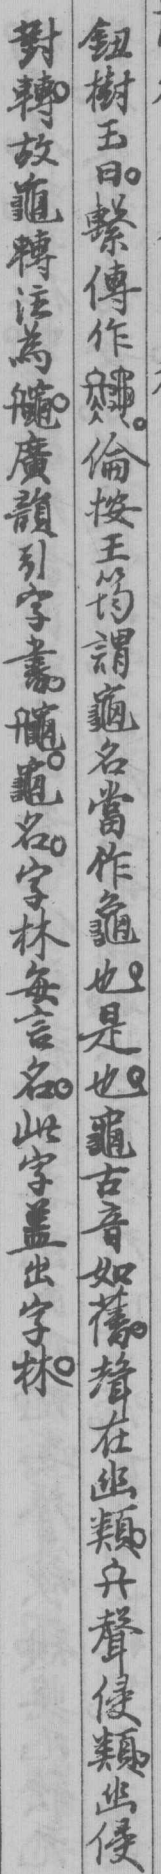 鈕樹玉曰。繫傳作𪚾。倫按王筠謂龜名當作龜也。是也。龜古音如舊。聲在幽類。𠔁聲侵類。幽侵
對轉。故龜轉注為𪚾。廣韻引字書。𪚾。龜名。字林每言名。此字蓋出字林。